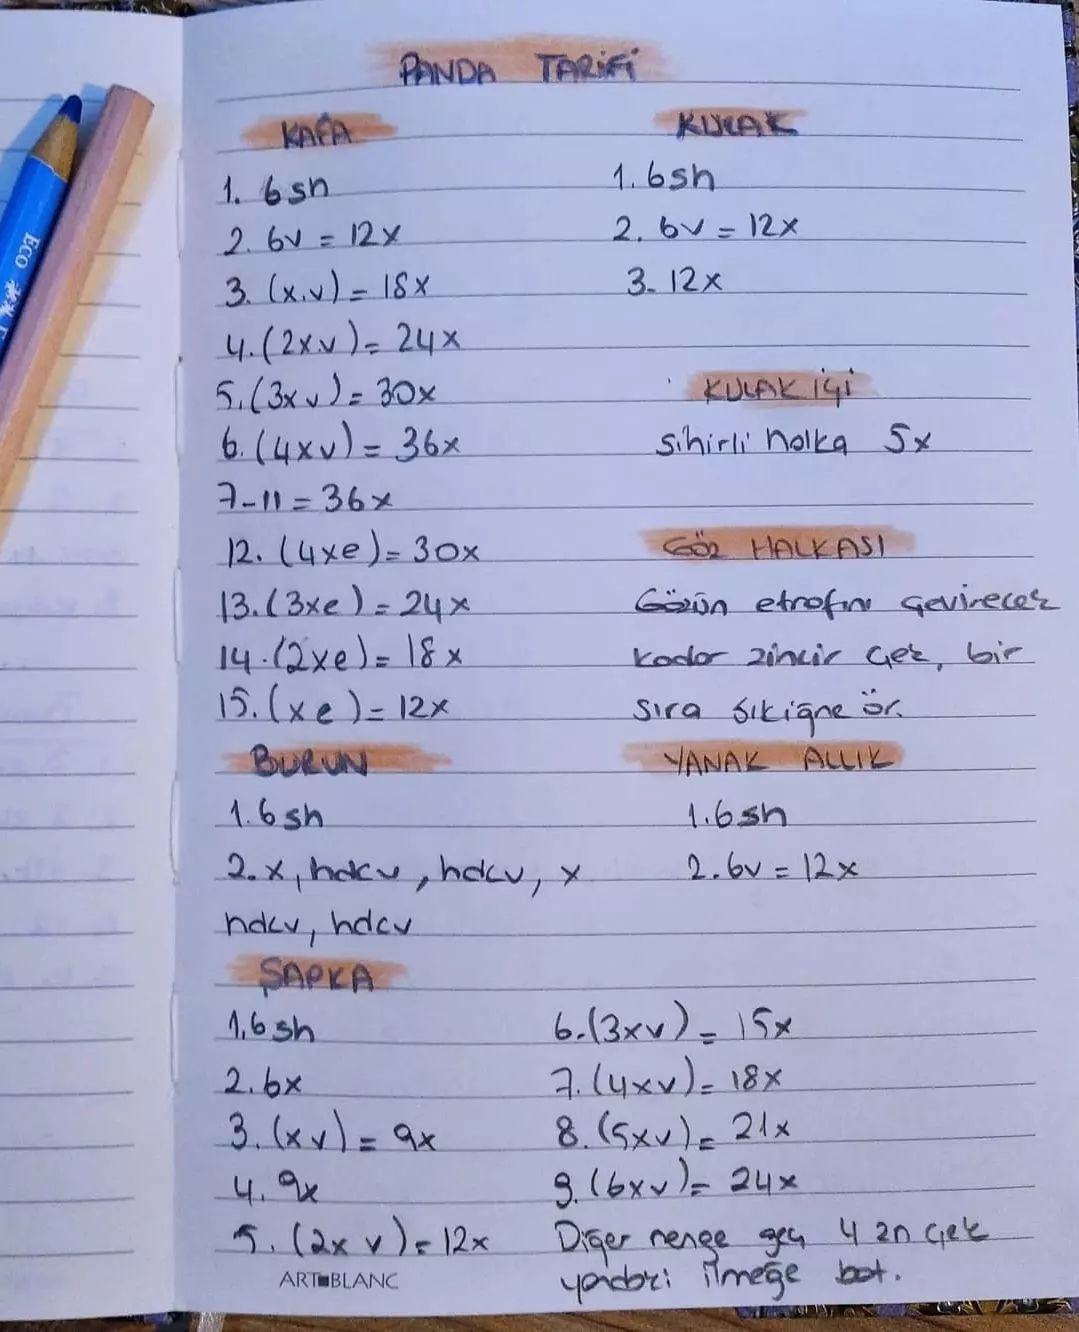 PANDA TARİFİ
KAFA
1. 6sh
2. 6v = 12x
3. (x.v) = 18x
4. (2xv) = 24x
5. (3xv) = 30x
6. (4xv) = 36x
7-11 = 36x
12. (4xe) = 30x
13. (3xe) = 24x
14. (2xe) = 18x
15. (xe) = 12x
KULAK
1. 6sh
2. 6v = 12x
3- 12x
KULAK İÇİ
Sihirli halka 5x
GÖZ HALKASI
Gözün etrafını çevirecek
kadar zincir çek, bir
sıra sıkiğne ör.
BURUN
1. 6sh
2. x, hdcv, hdcv, x
hdcv, hdcv
YANAK ALLIK
1. 6sh
2. 6v = 12x
ŞAPKA
1. 6sh
2. 6x
3. (xv) = 9x
4. 9x
5. (2xv) = 12x
6. (3xv) = 15x
7. (4xv) = 18x
8. (5xv) = 21x
9. (6xv) = 24x
Diğer renge geç 4 zn çek
yandaki ilmeğe bat.
ART BLANC
ECO